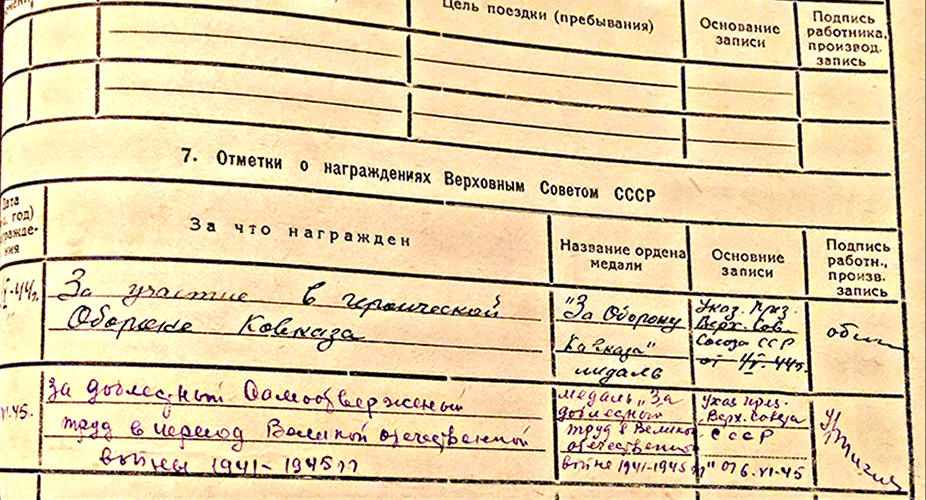 Цель поездки (пребывания)
Основание
записи
Подпись
работника,
производ.
запись
7. Отметки о награждениях Верховным Советом СССР
Дата
год)
награжде-
ния
За что награжден
Название ордена
медали
Основние
записи
Подпись
работн.,
произв.
запись
44г.
За участие в героической
Обороне Кавказа
"За Оборону
Кавказа"
медаль
Указ. През.
Верх. Сов.
Союза ССР
от 1/V-44г.
VI-45.
За доблестный Самоотверженый
труд в период Великой отечественной
войны 1941-1945гг
медаль "За
доблестный
труд в Велико
отечественно
войне 1941-1945гг"
Указ през.
Верх. Совета
СССР
от 6.VI-45